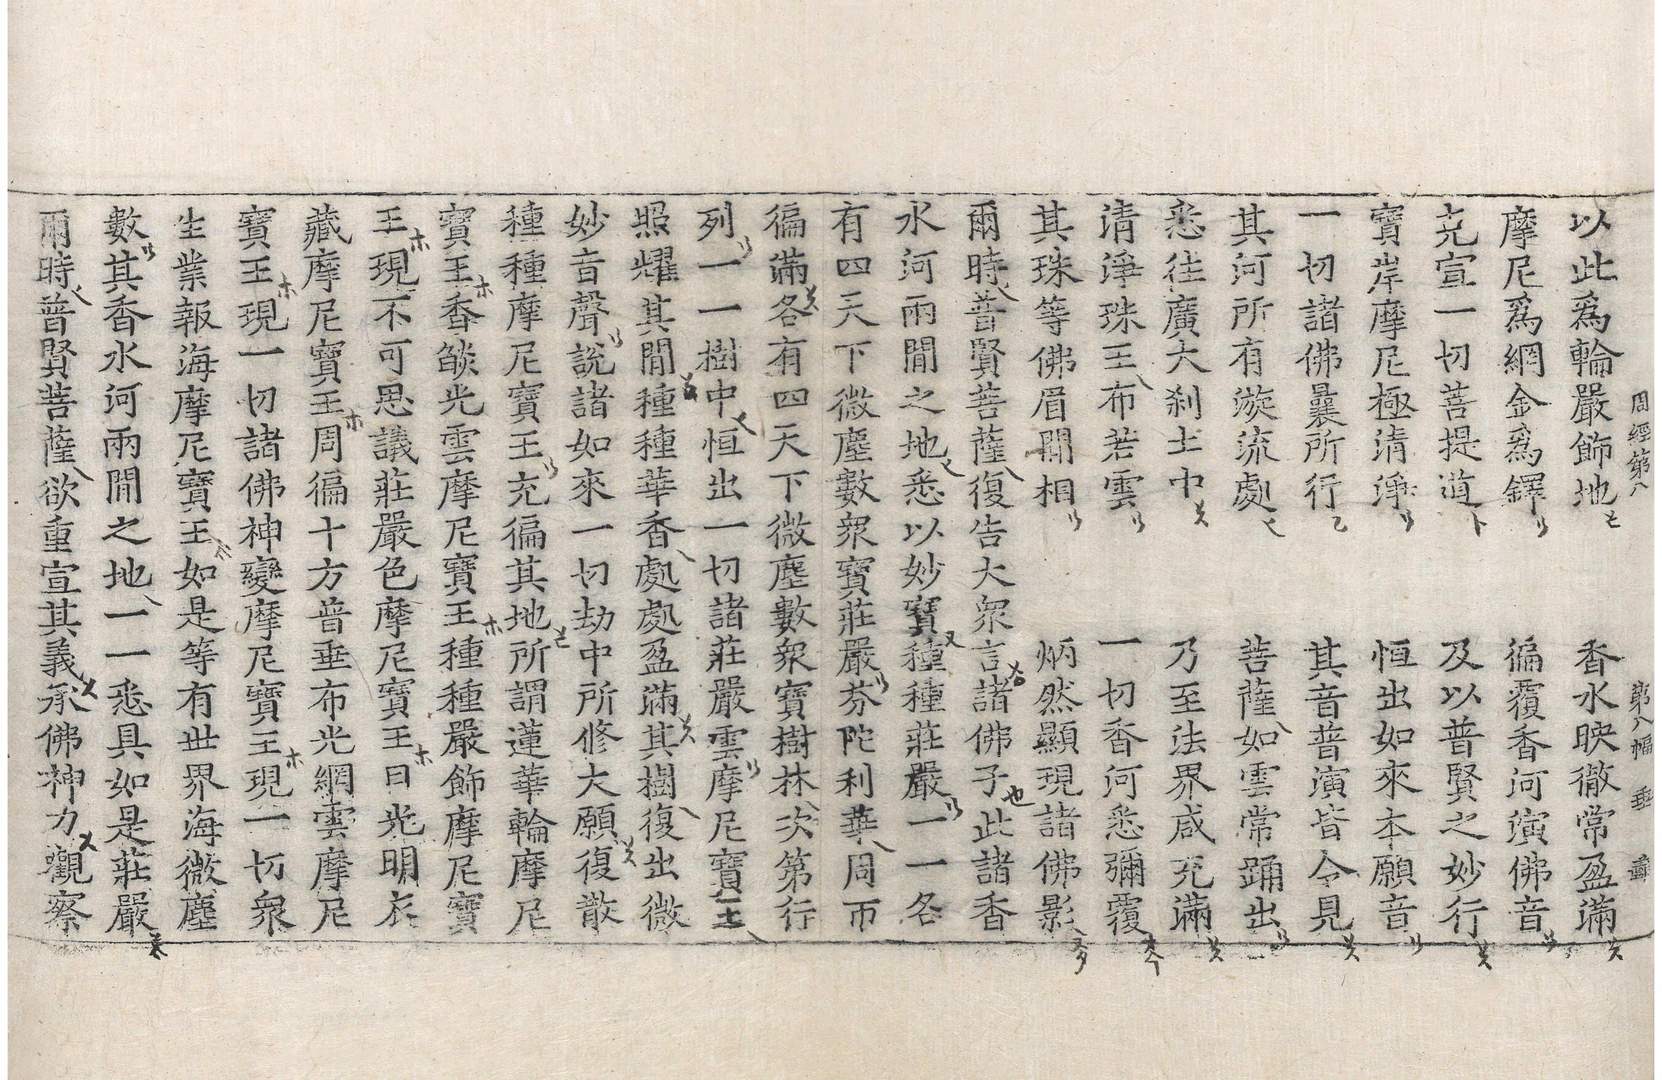 周經第八　第八幅　
以此爲輪嚴飾地　香水映徹常盈滿
摩尼爲網金爲鐸　徧覆香河演佛音
克宣一切菩提道　及以普賢之妙行
寶岸摩尼極清淨　恒出如來本願音
一切諸佛曩所行　其音普演皆令見
其河所有漩流處　菩薩如雲常踊出
悉往廣大刹土中　乃至法界咸充滿
清淨珠王布若雲　一切香河悉彌覆
其珠等佛眉間相　炳然顯現諸佛影
爾時普賢菩薩復告大衆言諸佛子此諸香
水河兩間之地悉以妙寶種種莊嚴一一各
有四天下微塵數衆寶莊嚴芬陀利華周帀
徧滿各有四天下微塵數衆寶樹林次第行
列一一樹中恒出一切諸莊嚴雲摩尼寶王
照耀其間種種華香處處盈滿其樹復出微
妙音聲說諸如來一切劫中所修大願復散
種種摩尼寶王充徧其地所謂蓮華輪摩尼
寶王香燄光雲摩尼寶王種種嚴飾摩尼寶
王現不可思議莊嚴色摩尼寶王日光明衣
藏摩尼寶王周徧十方普垂布光網雲摩尼
寶王現一切諸佛神變摩尼寶王現一切衆
生業報海摩尼寶王如是等有世界海微塵
數其香水河兩間之地一一悉具如是莊嚴
爾時普賢菩薩欲重宣其義承佛神力觀察